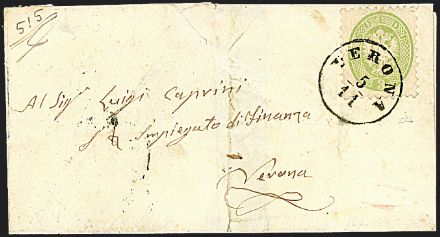 515
VERONA
5
11
Al Sig.r Luigi Caprini
Impiegato di Finanza
Verona